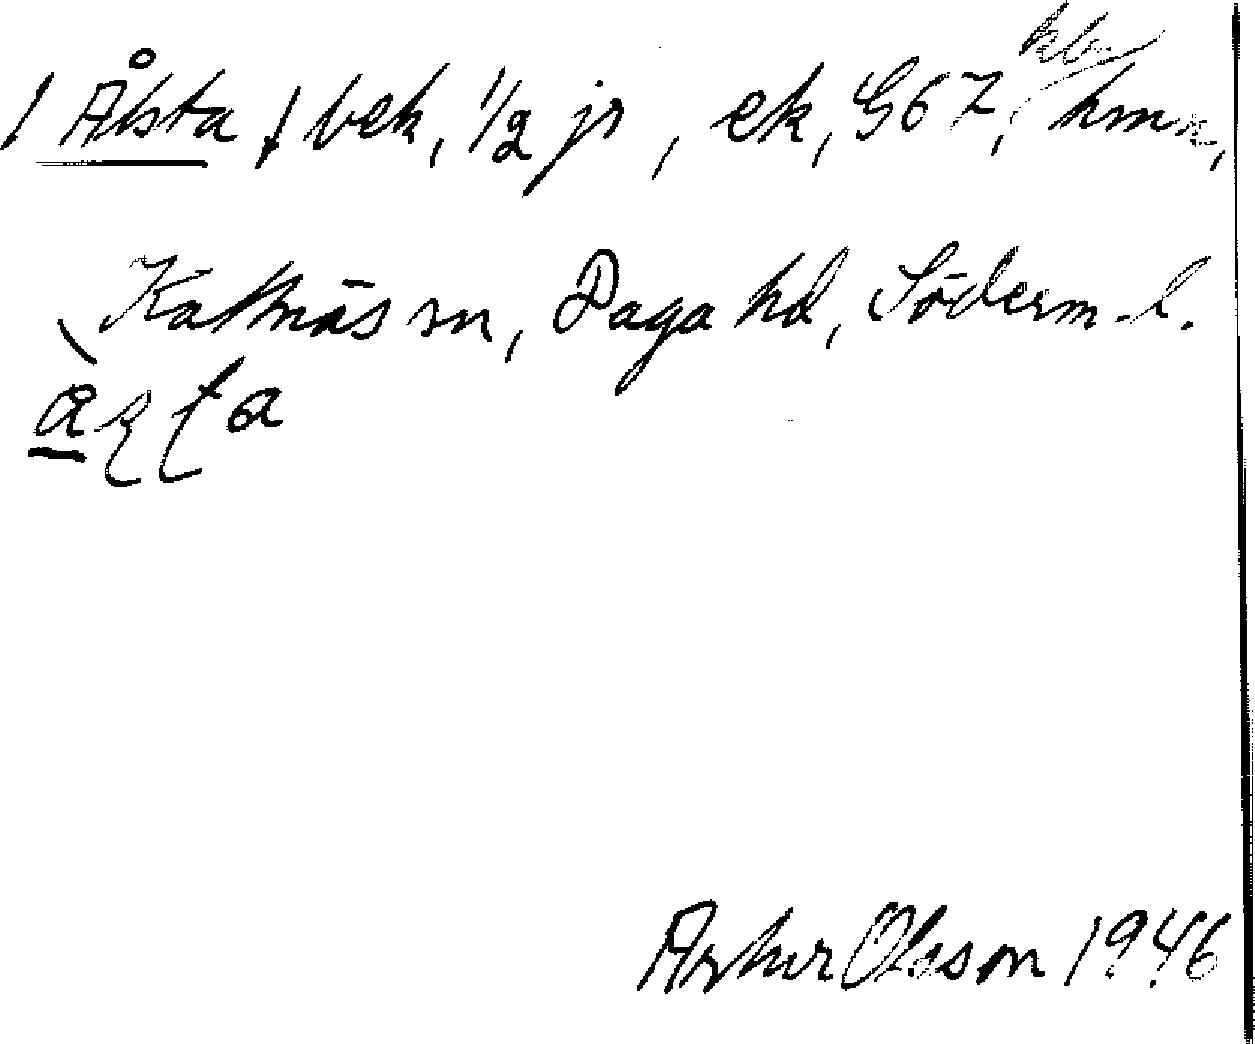 1 Ålsta † bek, 1/2 jr, ek, G67, kb
hmn,
Kattnäs sn, Daga hd, Söderm. l.
Arthur Olsson 1946